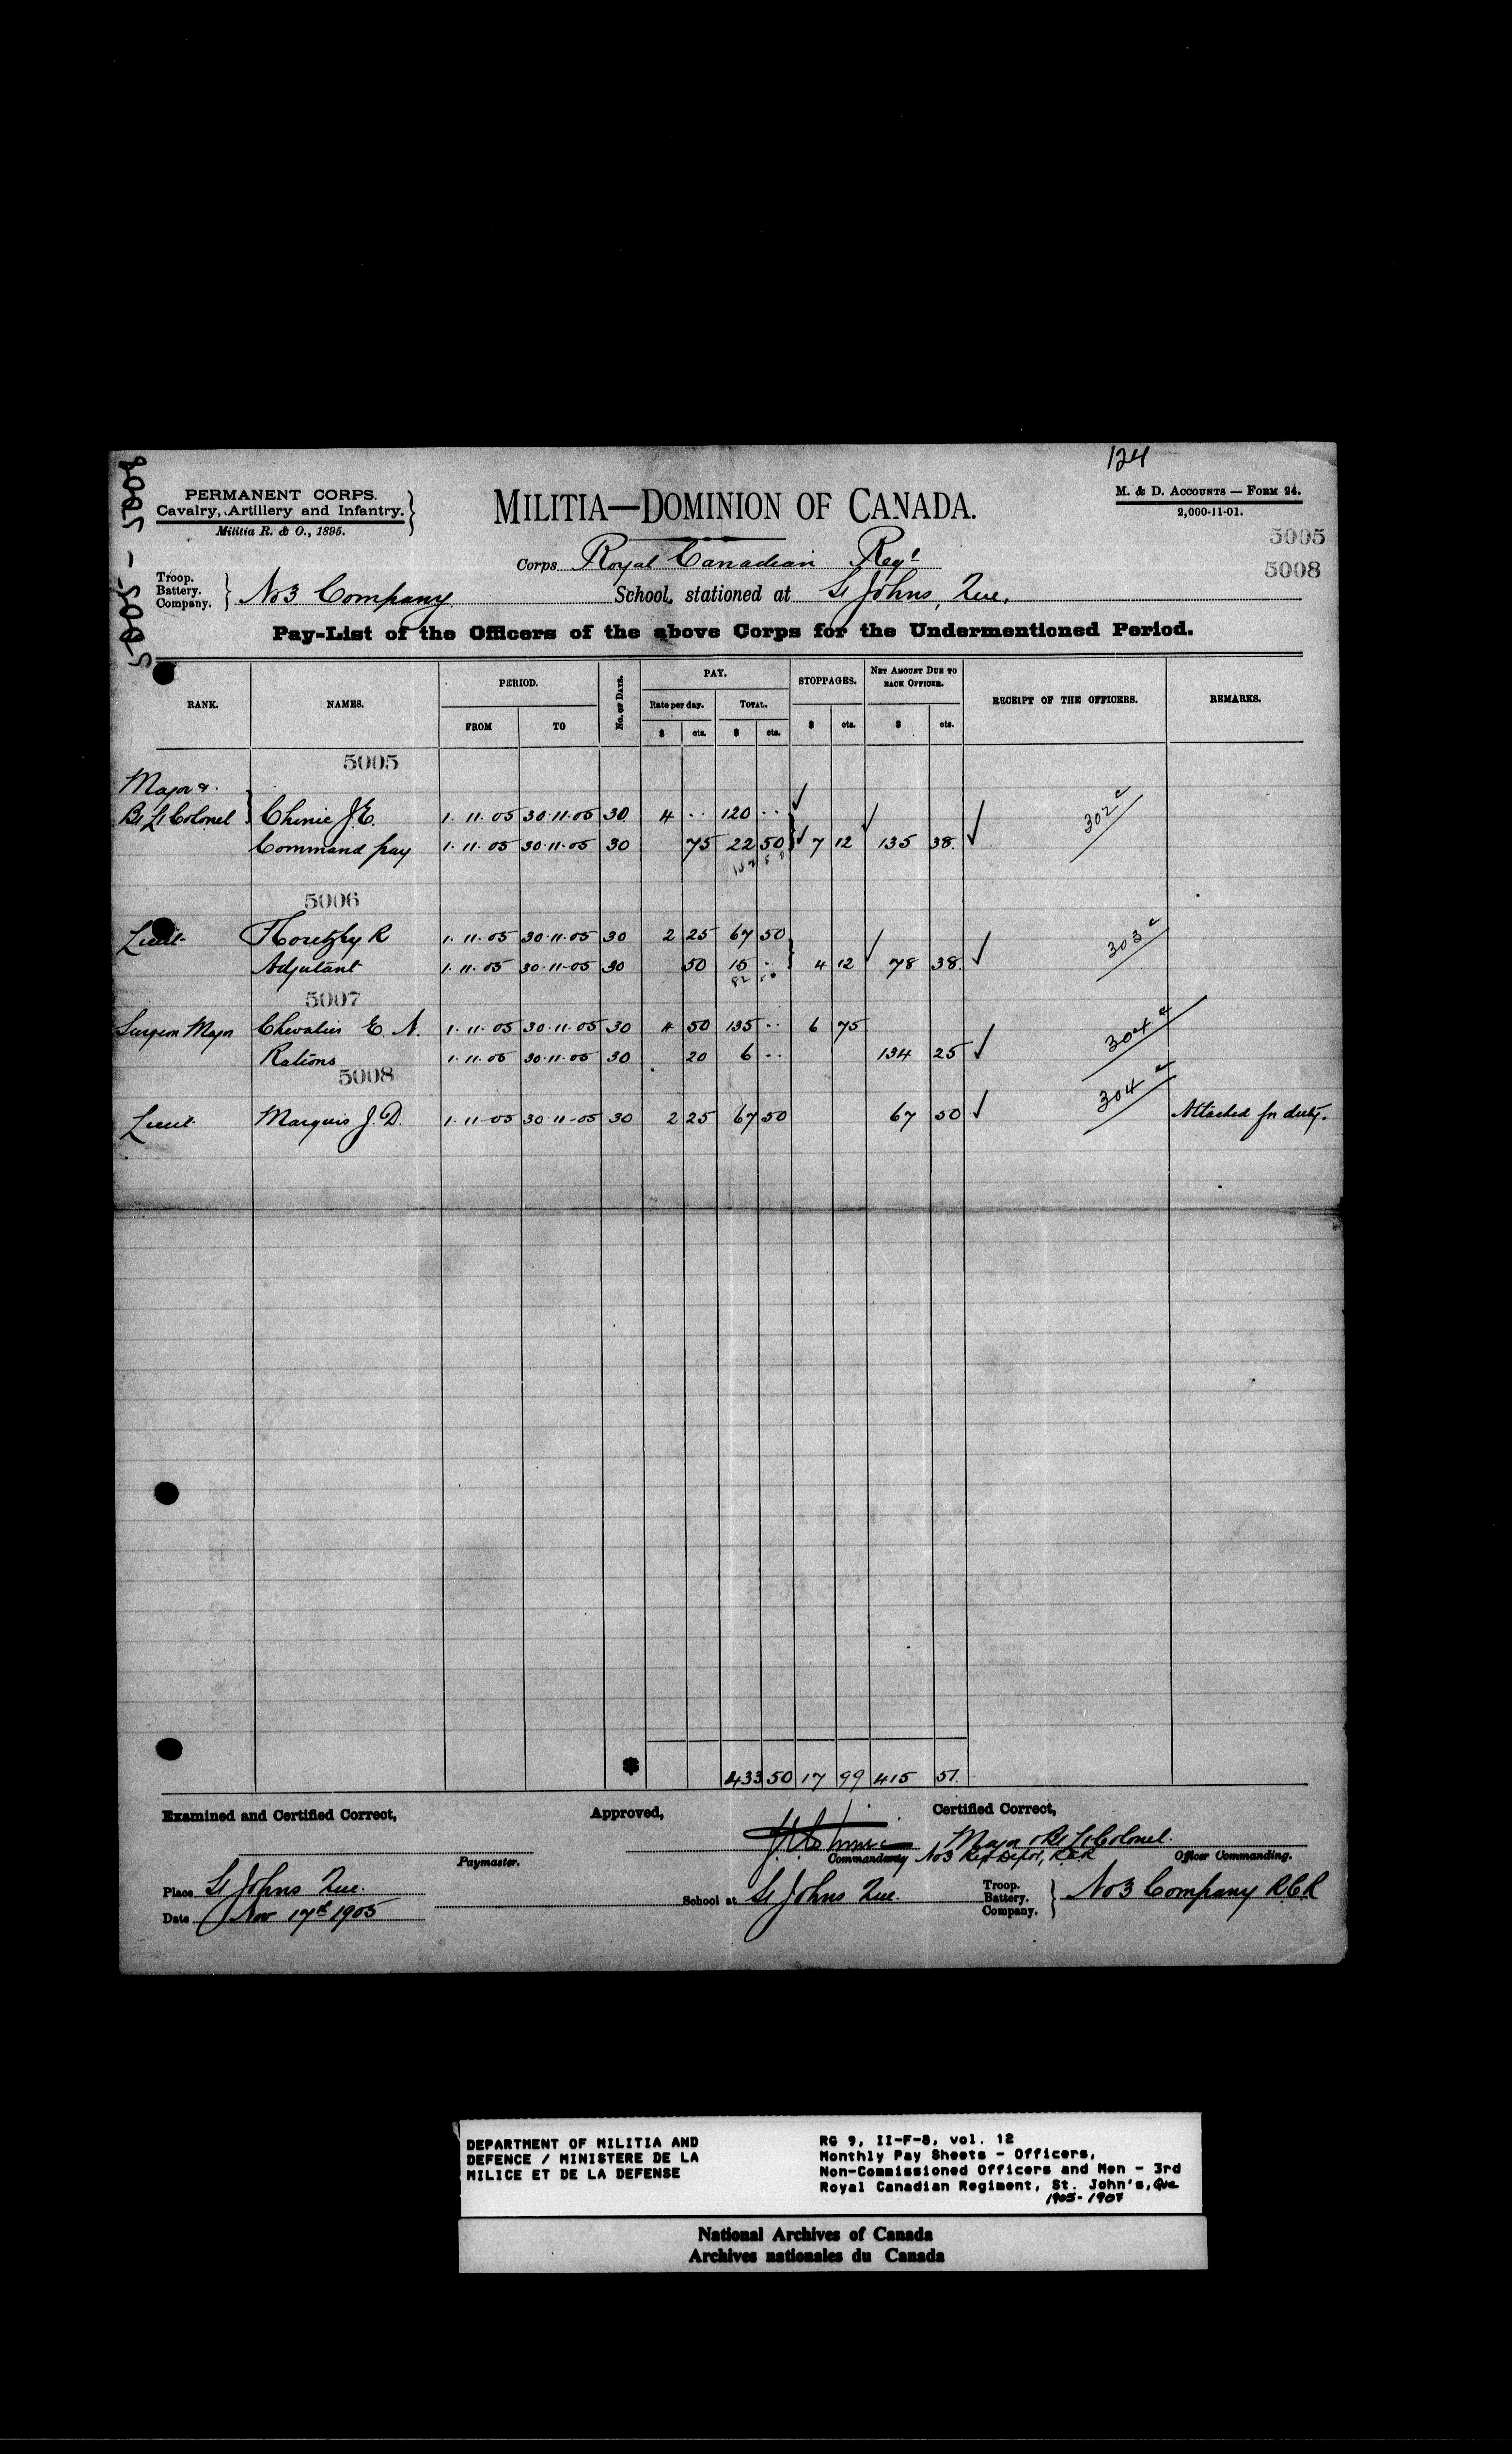 124
5005 - 5008
PERMANENT CORPS.
Cavalry, Artillery and Infantry.
Militia R. & O., 1895.
MILITIA—DOMINION OF CANADA.
M. & D. ACCOUNTS — FORM 24.
2,000-11-01.
5005
5008
Corps Royal Canadian Regt
Troop. Battery. Company. } No 3 Company School, stationed at St Johns, Que.
Pay-List of the Officers of the above Corps for the Undermentioned Period.
RANK. NAMES. PERIOD. FROM TO No. of Days. PAY. Rate per day. $ cts. TOTAL. $ cts. STOPPAGES. $ cts. NET AMOUNT DUE TO EACH OFFICER. $ cts. RECEIPT OF THE OFFICERS. REMARKS.
5005
Major &
Bt Lt Colonel } Chinic J.E. 1. 11. 05 30.11.05 30 4 .. 120 .. 302
Command pay 1. 11. 05 30.11.05 30 75 22 50 7 12 135 38
152 50
5006
Lieut. Horetzky R 1. 11. 05 30.11.05 30 2 25 67 50 303
Adjutant 1. 11. 05 30.11-05 30 50 15 .. 4 12 78 38
82 50
5007
Surgeon Major Chevalier E. N. 1. 11. 05 30.11.05 30 4 50 135 .. 6 75 304
Rations 1. 11. 05 30.11.05 30 20 6 .. 134 25
5008
Lieut. Marquis J. D. 1. 11-05 30 11-05 30 2 25 67 50 67 50 304 Attached for duty.
433 50 17 99 415 51
Examined and Certified Correct, Approved, Certified Correct,
J. Chinic Major & Bt Lt Colonel.
Paymaster. Commandant No 3 Regt Depot, RCR Officer Commanding.
Place St Johns Que. School at St Johns Que. Troop. Battery. Company. } No 3 Company RCR
Date Nov 17th 1905
DEPARTMENT OF MILITIA AND
DEFENCE / MINISTERE DE LA
MILICE ET DE LA DEFENSE
RG 9, II-F-8, vol. 12
Monthly Pay Sheets - Officers,
Non-Commissioned Officers and Men - 3rd
Royal Canadian Regiment, St. John's, Que
1905-1907
National Archives of Canada
Archives nationales du Canada